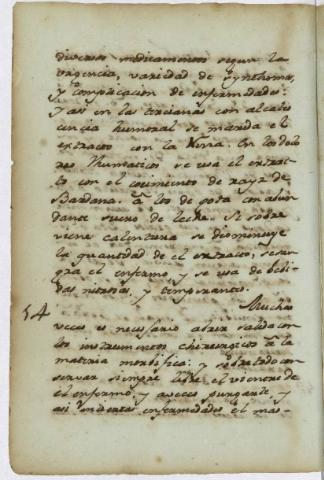 diversos medicamentos segun la
urgencia, variedad de synthomas,
y complicacion de enfermedades:
y asi en las tercianas con alcales
cencia humoral se marida el
extracto con la Kina. En los dolo
res Rhumaticos se usa el extrac
to con el cocimiento de rayz de
Bardana â los de gota con abun
dante suero de leche. Si sobre
viene calentura se disminuye
la quantidad de el extracto, se san
gra el enfermo, y se usa de bebi
das nitrosas, y temperantes.
54 Muchas
veces es necesario abrir salida con
los instrumentos chirurgicos â la
materia morbifica: y sobre todo con
servar siempre libre el vientre de
el enfermo, y aveces purgante, y
asi en ciertas enfermedades el mas-